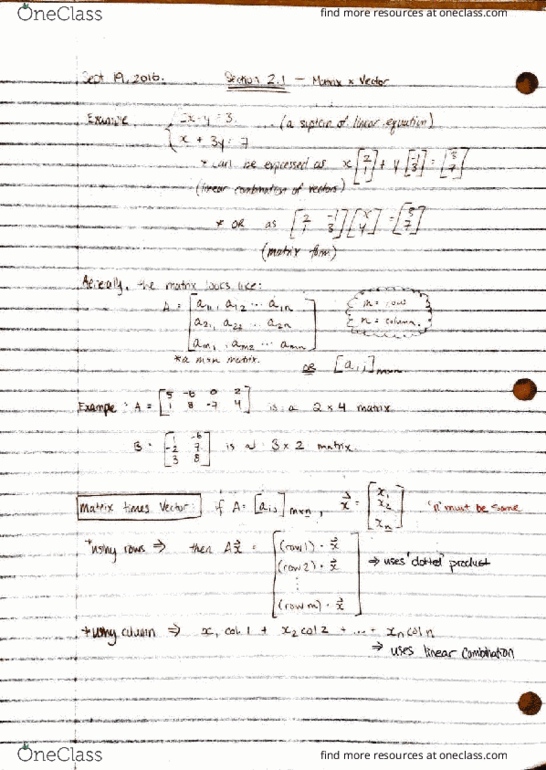 OneClass
find more resources at oneclass.com
Sept 19, 2016. Section 2.1 — Matrix x Vector
Example { 2x - y = 3 (a system of linear equation)
x + 3y = 7
* can be expressed as x [2 1] + y [-1 3] = [3 7]
(linear combination of vectors)
* OR as [2 -1 1 3] [x y] = [3 7]
(matrix form)
Generally, the matrix looks like:
A = [a11, a12 ... a1n
a21, a22 ... a2n
am1, am2 ... amn]
m = rows
n = column.
* a mxn matrix. OR [aij] mxn
Example: A = [5 -6 0 2
1 8 -7 4] is a 2 x 4 matrix
B = [1 -6
-2 7
3 8] is a 3 x 2 matrix.
Matrix times Vector: if A = [aij] mxn, x⃗ = [x1 x2 ⋮ xn] 'n' must be same
* using rows ⇒ then Ax⃗ = [(row 1) · x⃗
(row 2) · x⃗
⋮
(row m) · x⃗]
⇒ uses "dotted" product
* using column ⇒ x1 col 1 + x2 col 2 + ... + xn col n
⇒ uses linear combination
OneClass
find more resources at oneclass.com